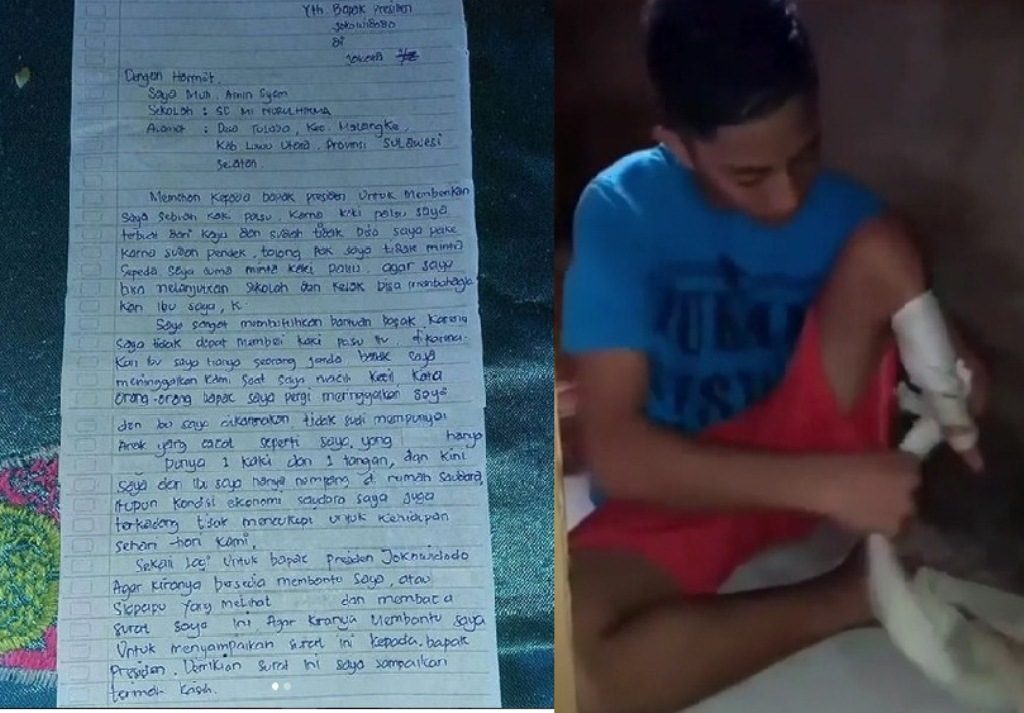 Yth. Bapak Presiden
Jokowidodo
di
Dengan Hormat,
Saya Muh. Amin Syam
Sekolah : SD MI NURUL HIKMA
Alamat : Desa Tolada, Kec. Malangke,
Kab Luwu Utara, Provinsi Sulawesi
Selatan.
Memohon Kepada bapak presiden Untuk Memberikan
Saya Sebuah kaki palsu. Karna kaki palsu saya
terbuat dari kayu dan sudah tidak bisa saya pake
karna sudah pendek, tolong Pak saya tidak minta
Sepeda saya cuma minta kaki palsu, agar saya
bisa melanjutkan sekolah dan kelak bisa membahagia
kan Ibu saya,
Saya sangat membutuhkan bantuan bapak karena
Saya tidak dapat membeli kaki palsu itu, dikarena-
kan Ibu saya hanya seorang janda bapak saya
meninggalkan kami saat saya masih kecil, kata
orang-orang bapak saya pergi meninggalkan saya
dan ibu saya dikarnakan tidak sudi mempunyai
Anak yang cacat seperti saya, yang hanya
Punya 1 kaki dan 1 tangan, dan kini
Saya dan ibu saya hanya numpang di rumah saudara
itupun kondisi ekonomi saudara saya juga
terkadang tidak mencukupi untuk kehidupan
sehari-hari kami,
Sekali lagi Untuk bapak presiden Jokowidodo
Agar kiranya bersedia membantu saya, atau
Siapapu yang melihat dan membaca
surat saya ini, Agar kiranya Membantu saya
Untuk menyampaikan surat ini kepada bapak
Presiden. Demikian surat ini saya sampaikan
terimah kasih.